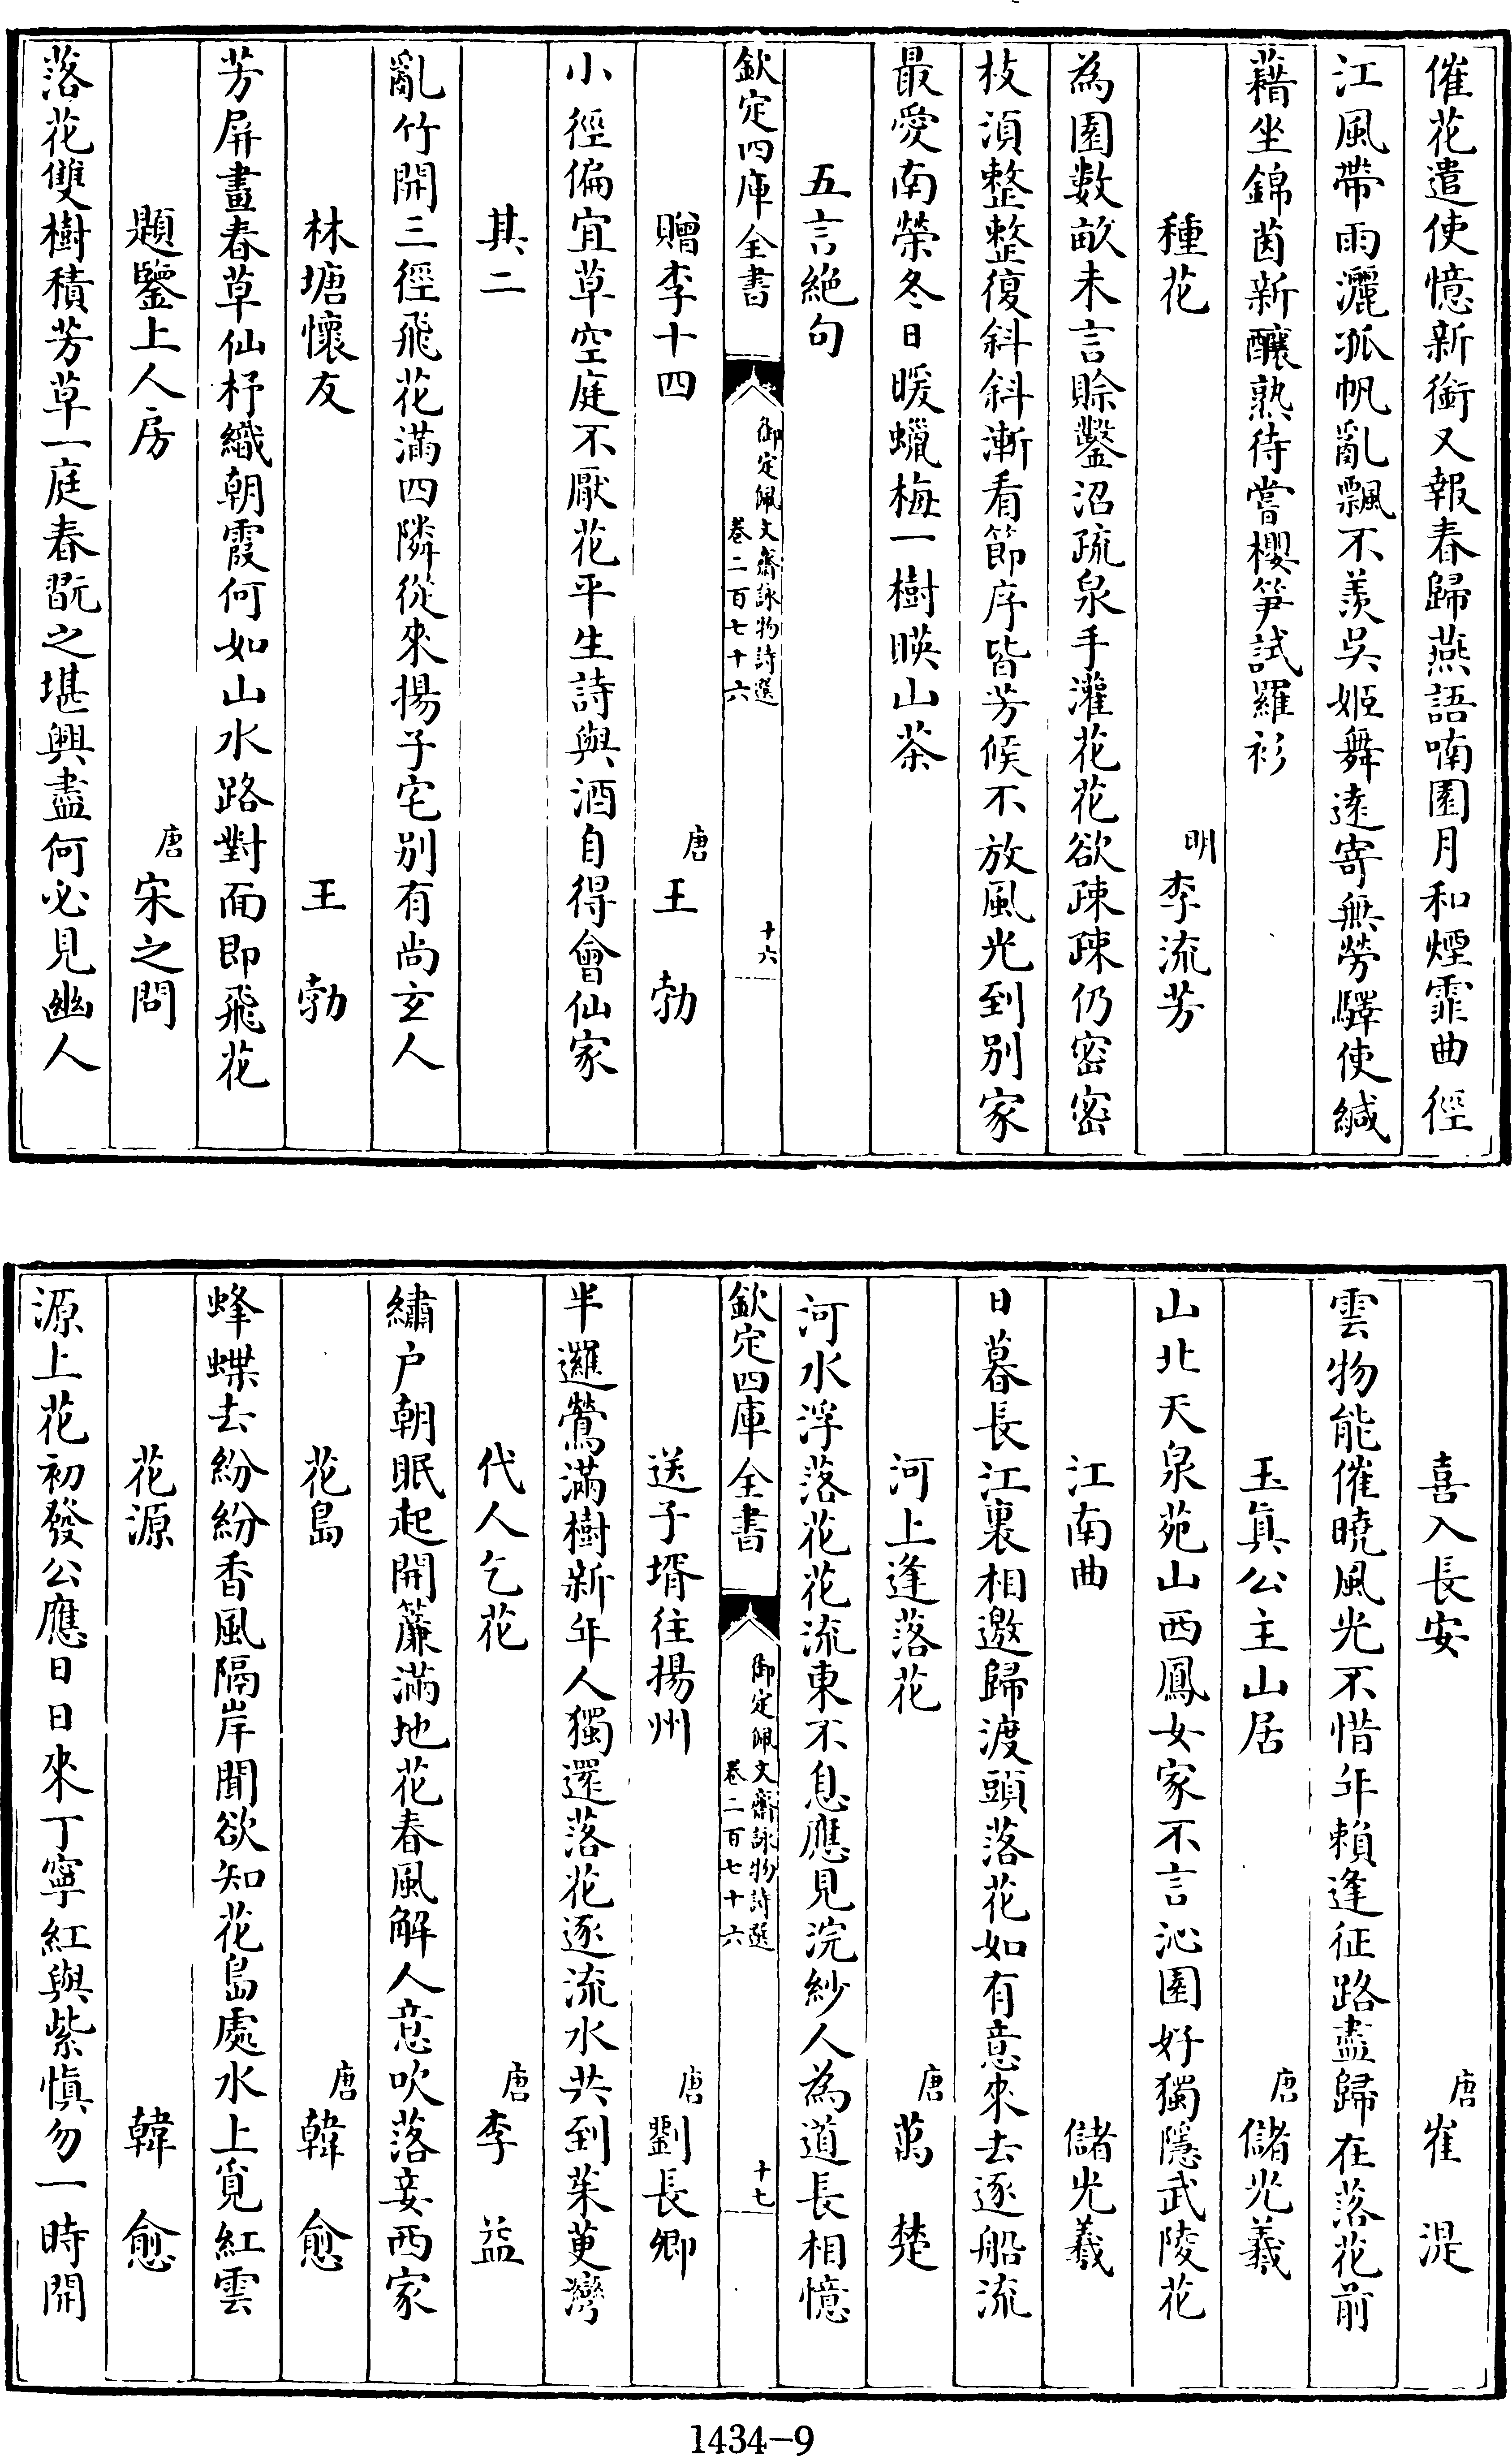 催花遣使憶新銜又報春歸燕語喃園月和煙霏曲徑
江風帶雨灑孤帆亂飄不羨吳姬舞遠寄無勞驛使緘
藉坐錦茵新釀熟待嘗櫻笋試羅衫
種花 明 李流芳
為園數畝未言賒鑿沼疏泉手灌花花欲疎疎仍密密
枝須整整復斜斜漸看節序皆芳候不放風光到別家
最愛南榮冬日暖蠟梅一樹暎山茶
五言絶句
欽定四庫全書 御定佩文齋詠物詩選 卷二百七十六 十六
贈李十四 唐 王勃
小徑偏宜草空庭不厭花平生詩與酒自得會仙家
其二
亂竹開三徑飛花滿四隣從來揚子宅別有尚玄人
林塘懷友 王勃
芳屏畫春草仙杼織朝霞何如山水路對面即飛花
題鑒上人房 唐 宋之問
落花雙樹積芳草一庭春翫之堪興盡何必見幽人
喜入長安 唐 崔湜
雲物能催曉風光不惜年賴逢征路盡歸在落花前
玉真公主山居 唐 儲光羲
山北天泉苑山西鳳女家不言沁園好獨隱武陵花
江南曲 儲光羲
日暮長江裏相邀歸渡頭落花如有意來去逐船流
河上逢落花 唐 萬楚
河水浮落花花流東不息應見浣紗人為道長相憶
欽定四庫全書 御定佩文齋詠物詩選 卷二百七十六 十七
送子壻往揚州 唐 劉長卿
半邏鶯滿樹新年人獨還落花逐流水共到茱萸灣
代人乞花 唐 李益
繡户朝眠起開簾滿地花春風解人意吹落妾西家
花島 唐 韓愈
蜂蝶去紛紛香風隔岸聞欲知花島處水上覓紅雲
花源 韓愈
源上花初發公應日日來丁寧紅與紫慎勿一時開
1434-9